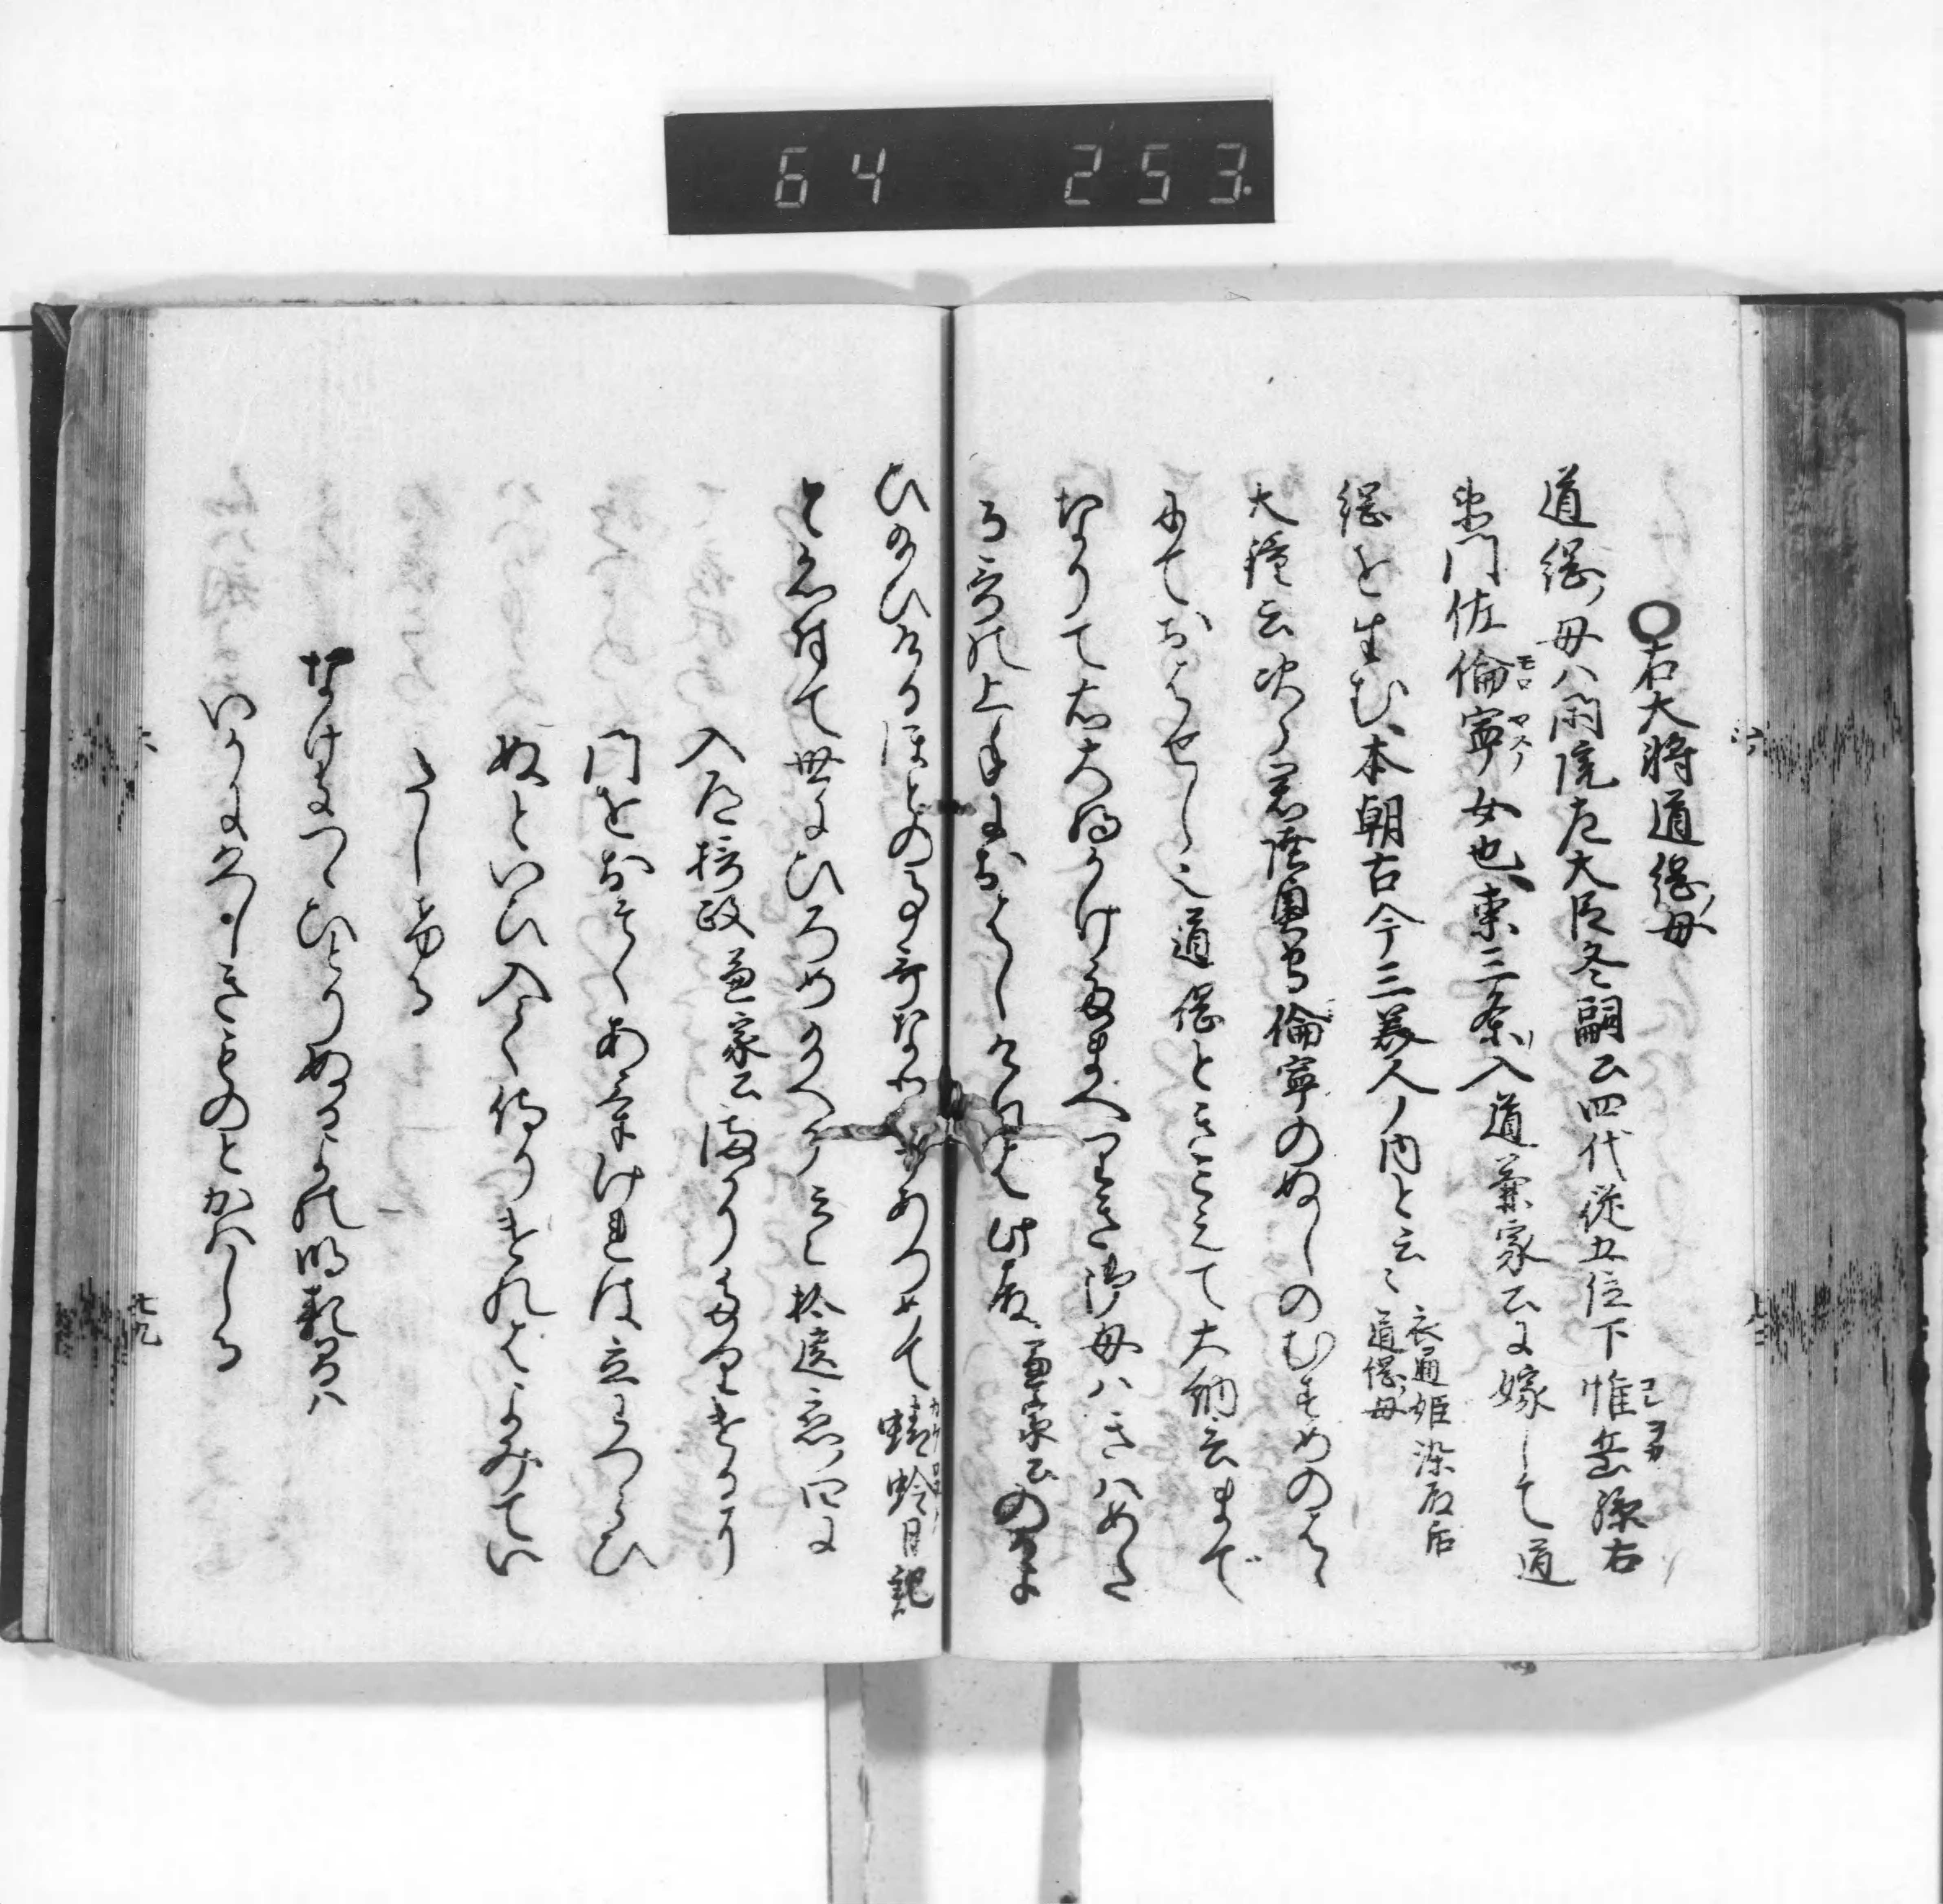 64 253
○右大将道綱母
道綱ノ母ハ閑院左大臣冬嗣公四代従五位下惟岳孫右
衛門佐倫寧女也東三条入道兼家公に嫁して道
綱を生む本朝古今三美人ノ内と云々 衣通姫 染殿后 道綱ノ母
大鏡云次ノ君陸奥守倫寧のぬしのむすめのはら
にておはせし也道綱ときこえて大納言まで
なりて右大将かけ給へりき此母ハきハめた
る哥の上手におはしけれは此殿 兼家公 のかよ
ひ給ひけるほとの事哥なとかきあつめて蜻蛉日記
と名付て世にひろめ給へり 拾遺恋四に
入道摂政 兼家公 まかりたりけるに
門をおそくあけけれは立わつらひ
ぬといひ入て侍りけれはよみてい
たしける
なけきつゝひとりぬる夜の明るまハ
いかに久しきものとかハしる
七九